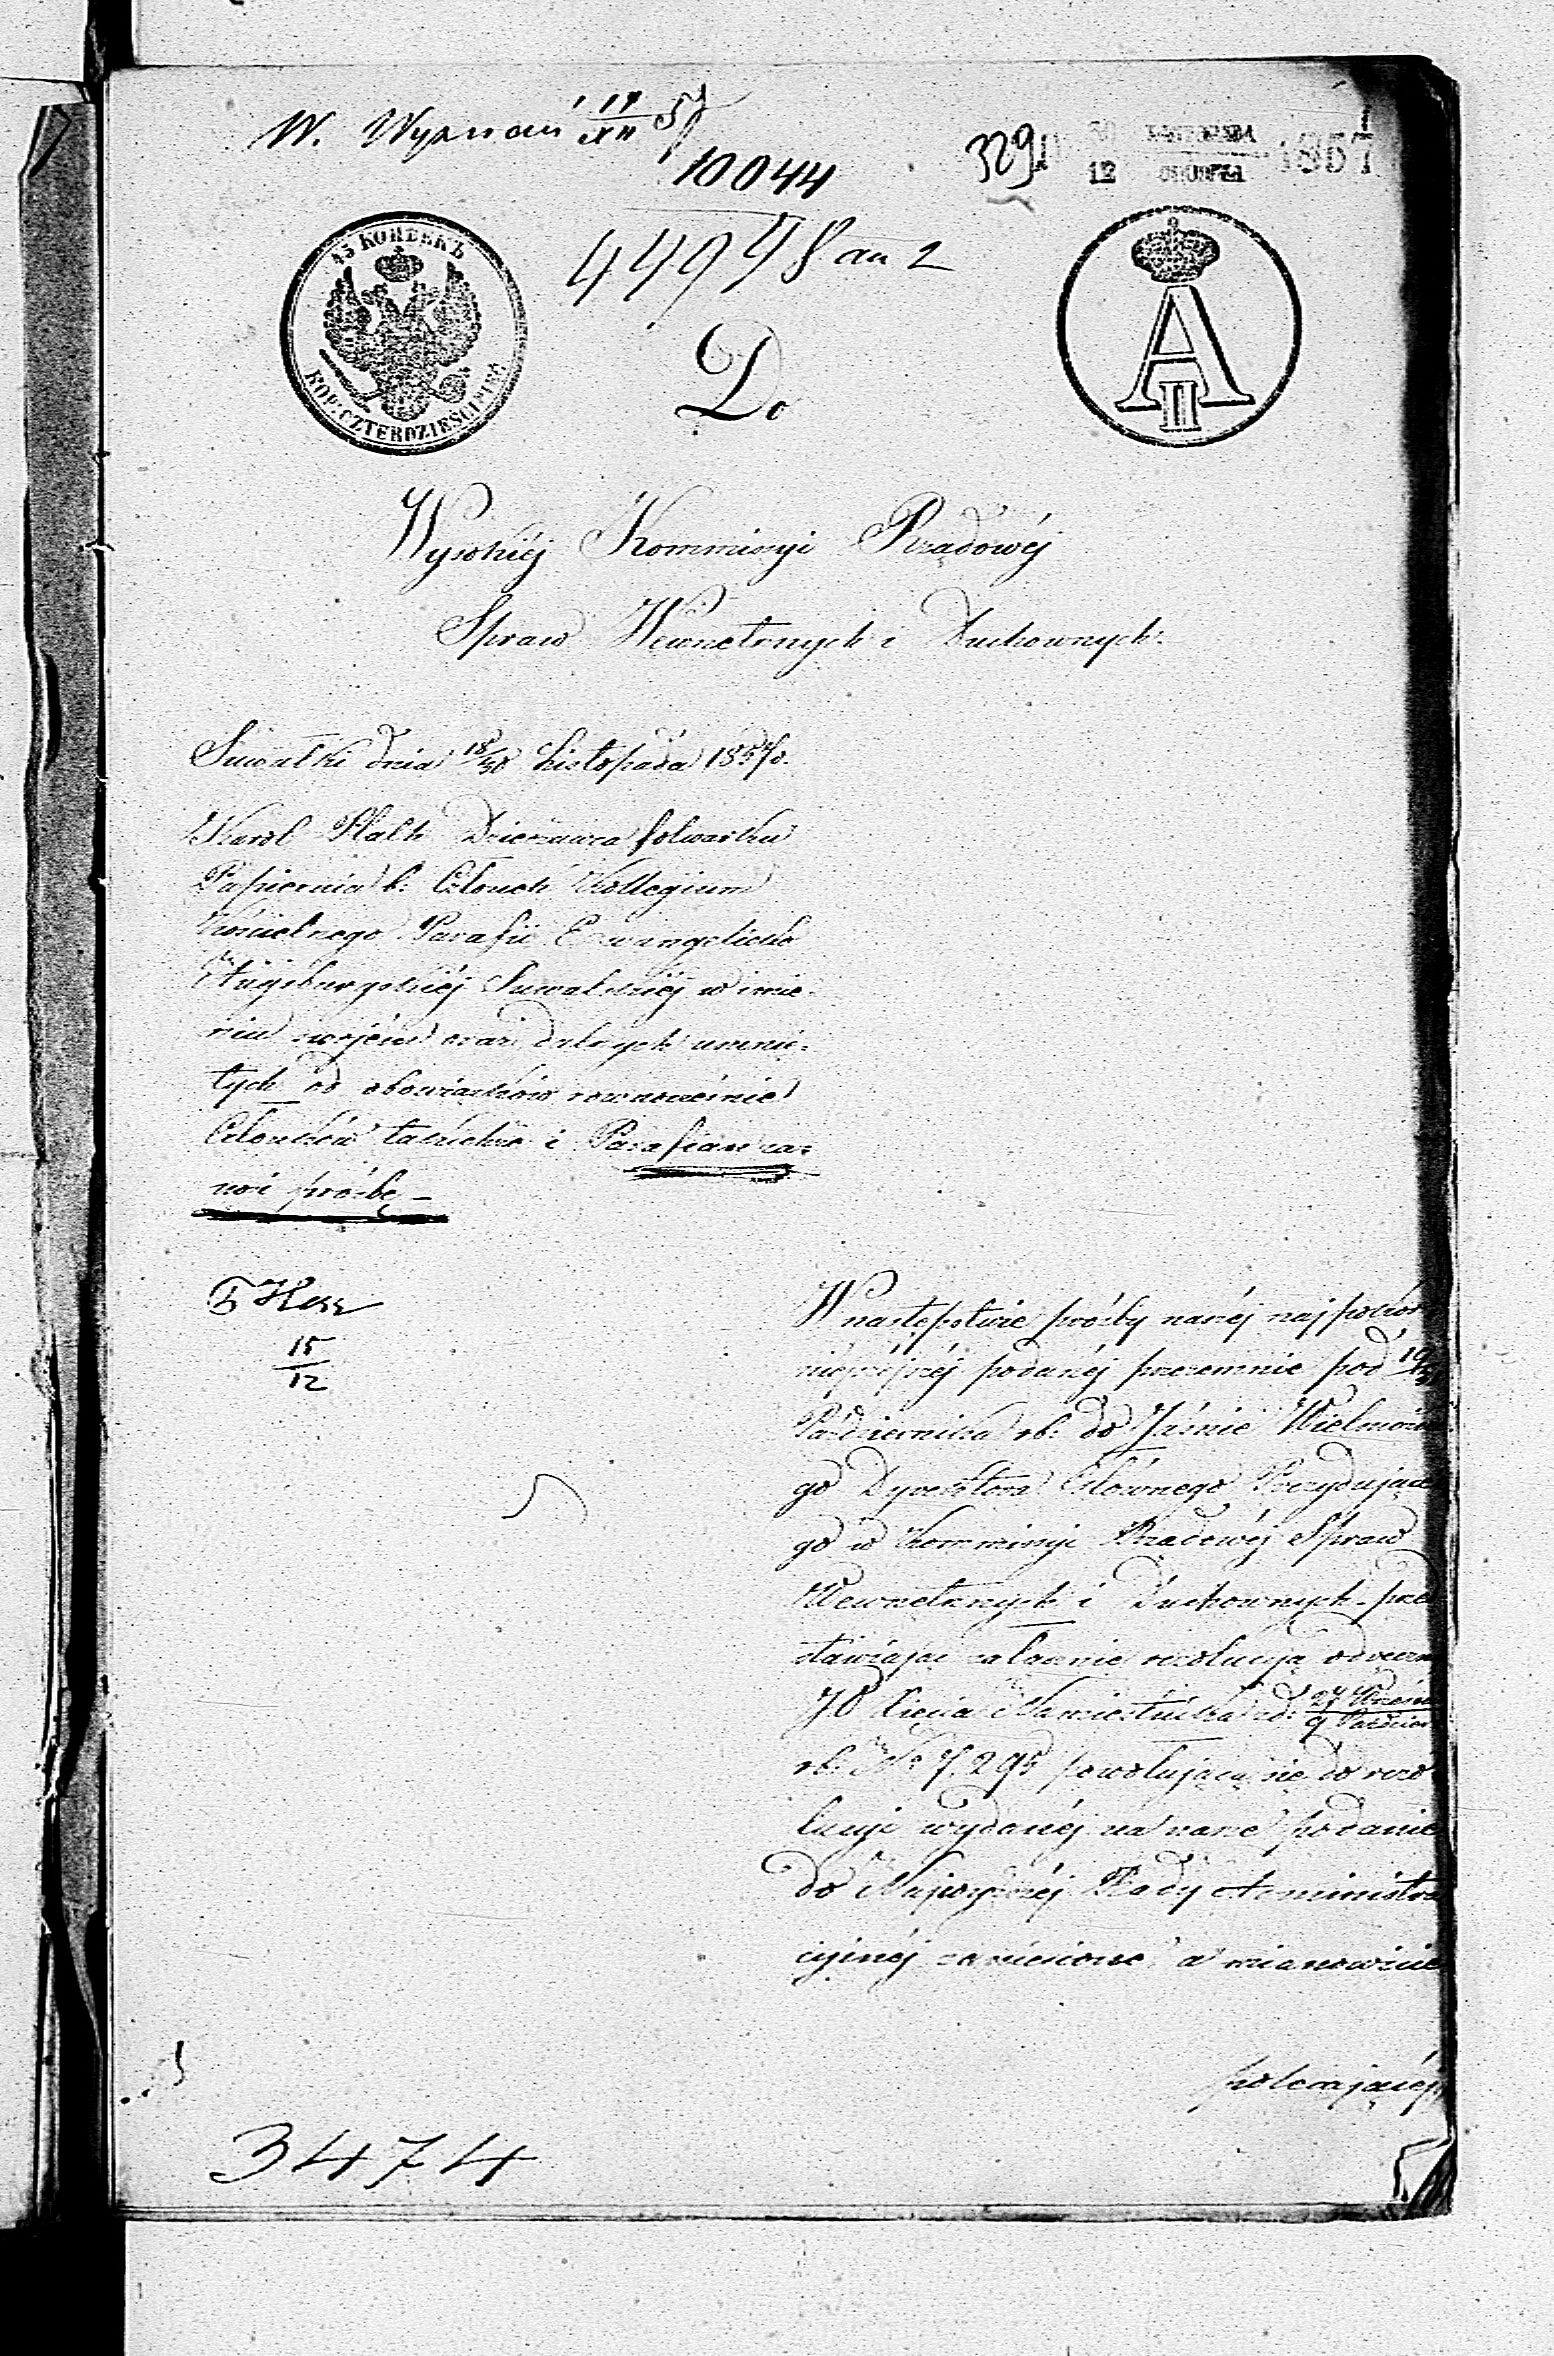 W. Wyznań 17/XII 57
10044
329
12 1857
44978 an 2
45 КОПѢЕКЪ
KOP: CZTERDZIEŚCI PIĘĆ
A II
Do
Wysokiéj Kommissyi Rządowéj
Spraw Wewnętrznych i Duchownych.
Suwałki dnia 18/30 Listopada 1857 r.
Karol Dzierżawca folwarku
Papiernia b: Członek Kollegium
Kościelnego Parafii Ewangelicko
Augsburgskiéj Suwalskiéj w imie-
niu swojém oraz usunię-
tych od obowiązków równocześnie
Członków tudzież i Parafian za-
nosi prośbę —
15/12
W następstwie prośby naszéj najpokor
niejszéj podanéj przezemnie pod 19/31
Października rb: do Jaśnie Wielmożne
go Dyrektora Głównego Prezydujące
go w Kommissyi Rządowéj Spraw
Wewnętrznych i Duchownych, przed
stawiając rezolucyą
JO Xięcia Namiestnika z d: 27 Wrześ / 9 Paździer
rb: No 7,295 powołującą się do rezo
lucyi wydanéj na nasze podanie
do Najwyższéj Rady Administra
cyjnéj zaniesione a mianowicie
polecającéj
3474